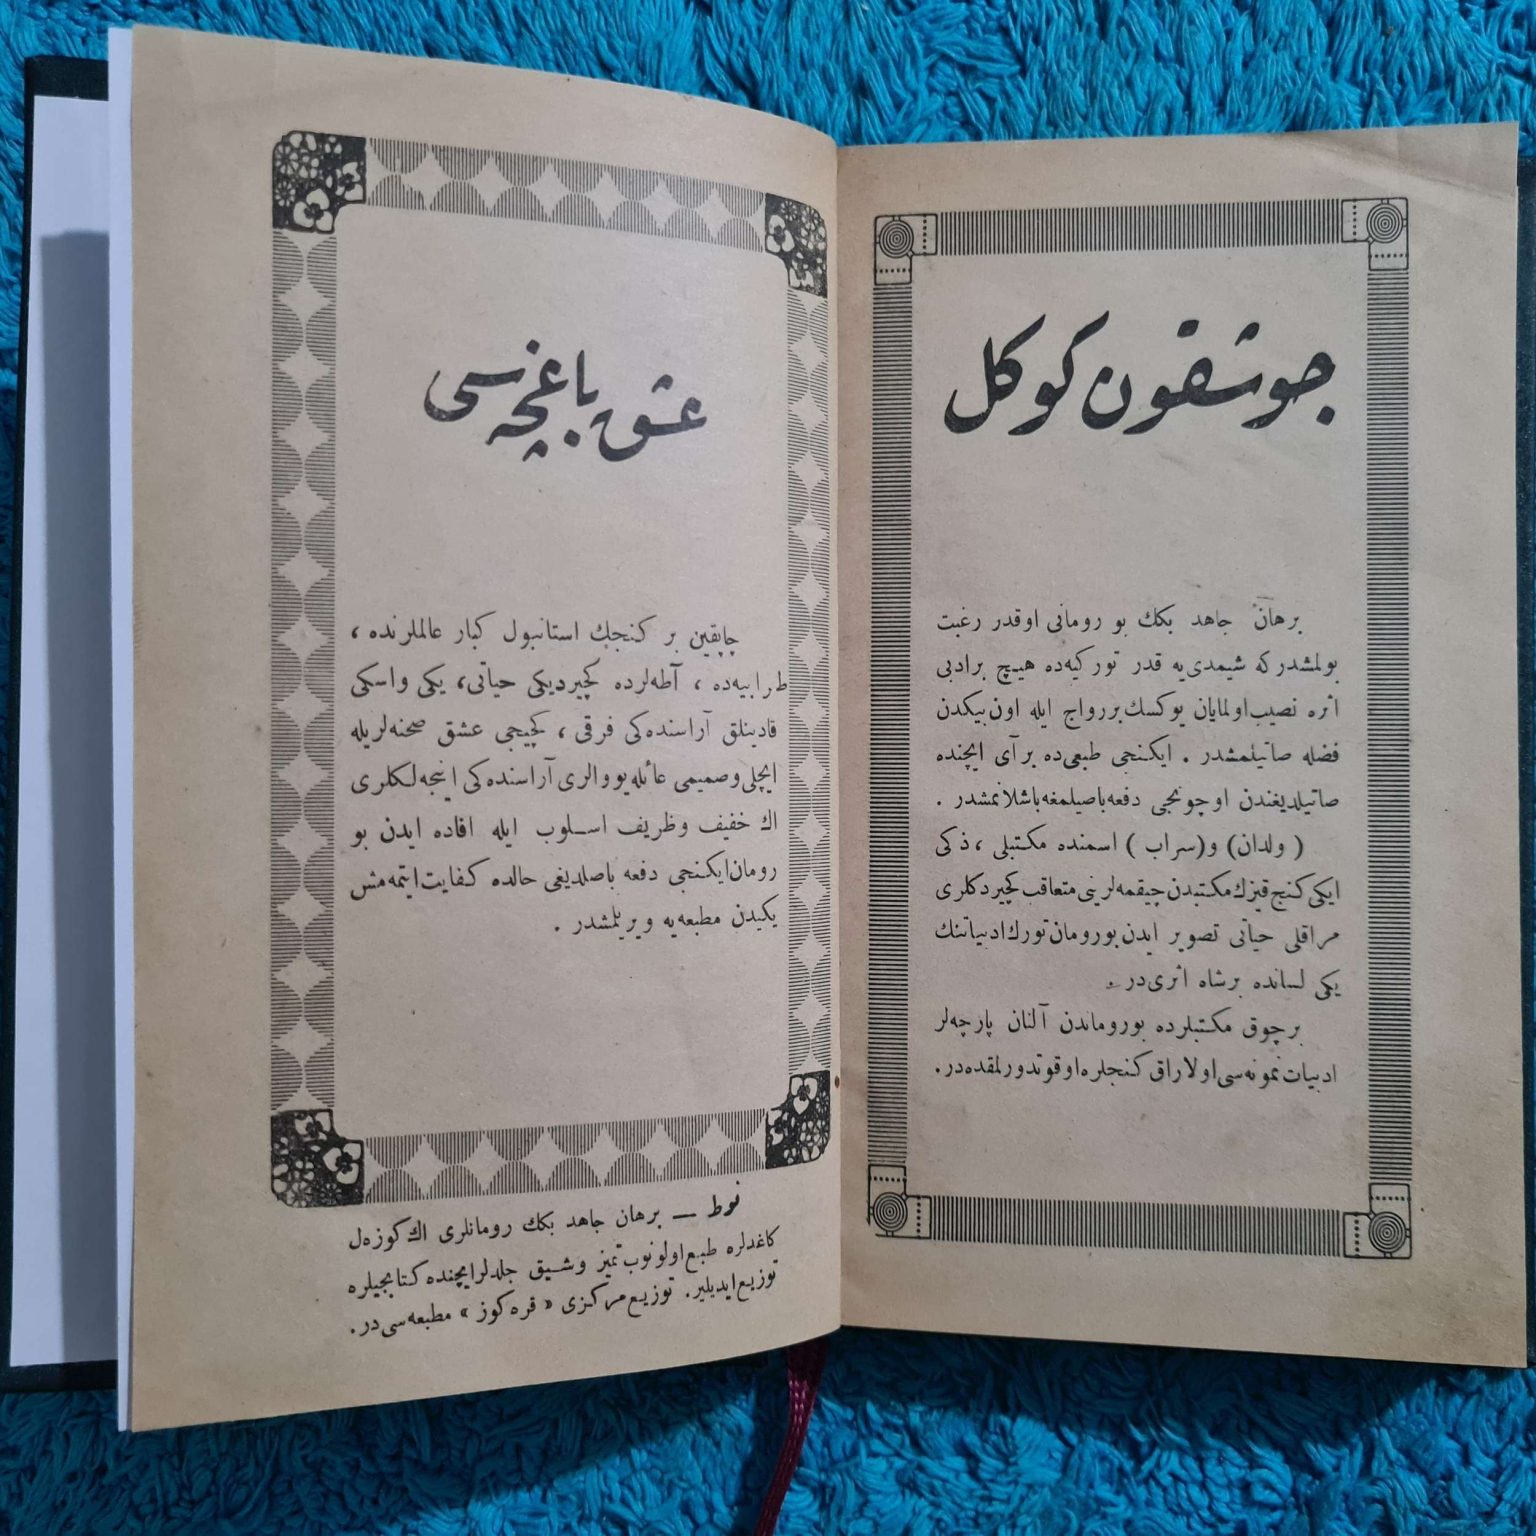 جوشقون كوكل
برهان جاهد بكك بو رومانى اوقدر رغبت
بولمشدركه شيمدى‌يه قدر توركيه‌ده هيچ برادبى
اثره نصيب اولمايان يوكسك بررواج ايله اون بيكدن
فضله صاتيلمشدر . ايكنجى طبعى‌ده برآى ايچنده
صاتيلديغندن اوچونجى دفعه باصيلمغه باشلانمشدر .
( ولدان) و(سراب ) اسمنده مكتبلى ، ذكى
ايكى كنج قيزك مكتبدن چيقمه‌لرينى متعاقب كچيردكلرى
مراقلى حياتى تصوير ايدن بورومان تورك ادبياتنك
يكى لسانده برشاه اثرى‌در .
برچوق مكتبلرده بوروماندن آلنان پارچه‌لر
ادبيات نمونه‌سى اولاراق كنجلره اوقوتدورلمقده‌در.
عشق باغچه‌سى
چاپقين بر كنجك استانبول كبار عالملرنده ،
طرابيه‌ده ، آطه‌لرده كچيرديكى حياتى، يكى واسكى
قادينلق آراسنده‌كى فرقى ، كچيجى عشق صحنه‌لريله
ايچلى وصميمى عائله يووالرى آراسنده‌كى اينجه‌لكلرى
اك خفيف وظريف اسلوب ايله افاده ايدن بو
رومان ايكنجى دفعه باصلديغى حالده كفايت ايتمه‌مش
يكيدن مطبعه‌يه ويريلمشدر .
نوط — برهان جاهد بكك رومانلرى اك كوزه‌ل
كاغدلره طبع اولونوب تميز وشيق جلدلر ايچنده كتابجيلره
توزيع ايديلير. توزيع مركزى « قره‌كوز » مطبعه‌سى‌در.